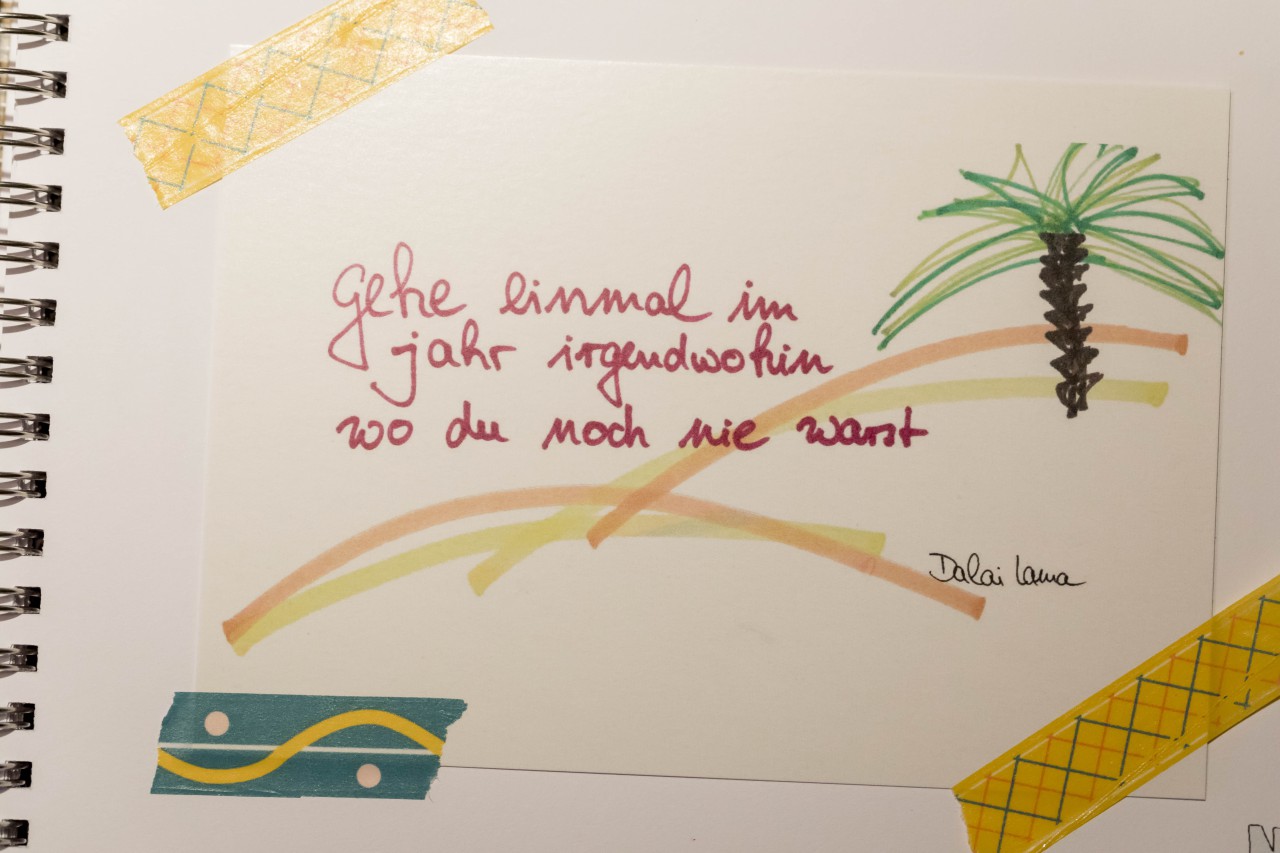 Gehe einmal im
jahr irgendwohin
wo du noch nie warst
Dalai Lama